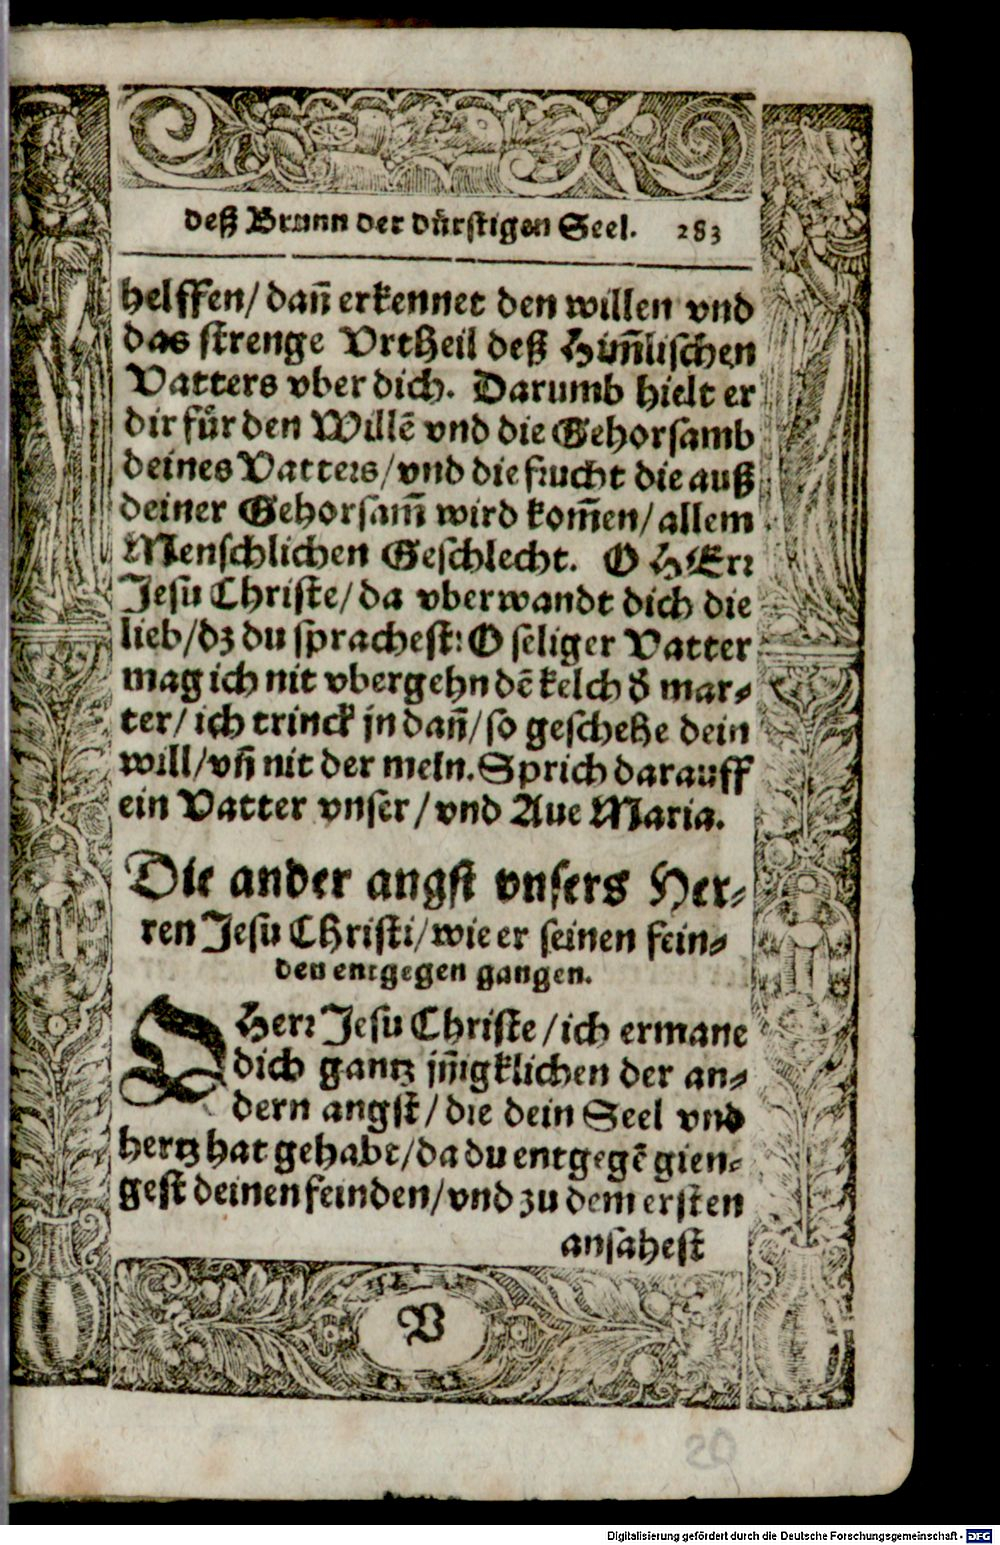 deß Brunn der dürstigen Seel. 283
helffen/ dañ erkennet den willen vnd
das strenge Vrtheil deß Him̃lischen
Vatters vber dich. Darumb hielt er
dir fůr den Willẽ vnd die Gehorsamb
deines Vatters/vnd die frucht die auß
deiner Gehorsam̃ wird kom̃en/allem
Menschlichen Geschlecht. O HErr
Jesu Christe/da vberwandt dich die
lieb/dz du sprachest: O seliger Vatter
mag ich nit vbergehn dẽ kelch d̃ mar-
ter/ ich trinck jn dañ/so geschehe dein
will/vñ nit der mein. Sprich darauff
ein Vatter vnser/vnd Aue Maria.
Die ander angst vnsers Her-
ren Jesu CHristi/wie er seinen fein-
den entgegen gangen.
O Herr Jesu Christe/ich ermane
dich gantz jñigklichen der an-
dern angst/die dein Seel vnd
hertz hat gehabt/da du entgegẽ gien-
gest deinen feinden/vnd zu dem ersten
ansahest
V
29
Digitalisierung gefördert durch die Deutsche Forschungsgemeinschaft - DFG